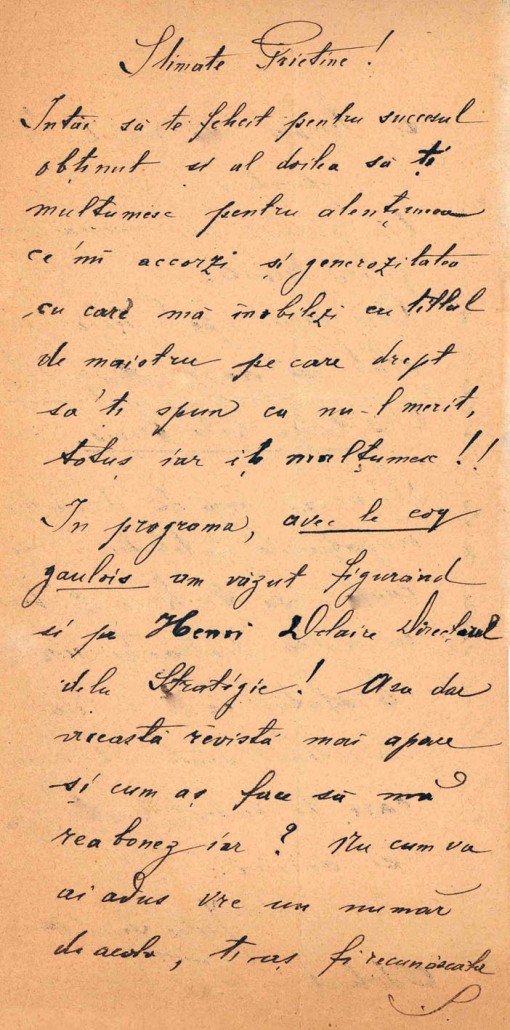 Stimate Prietine!
Intâi să te felicit pentru succesul
obținut si al doilea să ți
mulțumesc pentru atențiunea
ce'mi accorzi și generozitatea
cu care mă inobilezi cu titlul
de maiotru pe care drept
sa'ți spun ca nu-l merit,
totuș iar iți mulțumesc!!
In programa, avec le coq
gaulois am văzut figurând
si pe Henri Delaire Directorul
dela Stratégie! Asa dar
această revistă mai apare
și cum aș face să mă
reabonez iar? Nu cum va
ai adus vre un număr
de acolo, ti-aș fi recunoscator